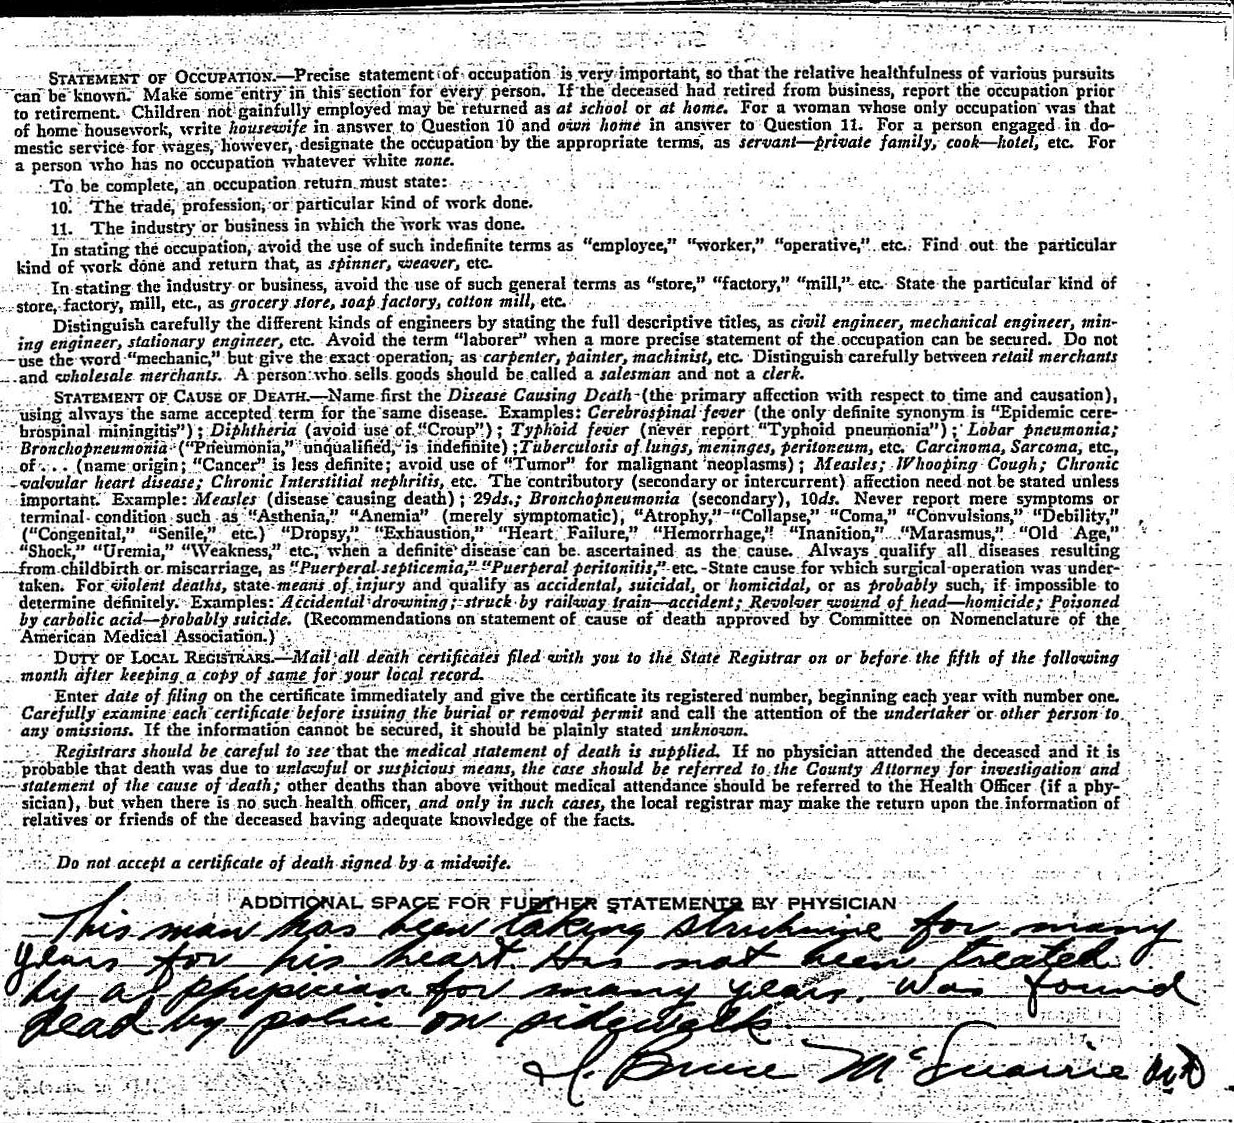 STATEMENT OF OCCUPATION.—Precise statement of occupation is very important, so that the relative healthfulness of various pursuits
can be known. Make some entry in this section for every person. If the deceased had retired from business, report the occupation prior
to retirement. Children not gainfully employed may be returned as at school or at home. For a woman whose only occupation was that
of home housework, write housewife in answer to Question 10 and own home in answer to Question 11. For a person engaged in do-
mestic service for wages, however, designate the occupation by the appropriate terms, as servant—private family, cook—hotel, etc. For
a person who has no occupation whatever white none.
To be complete, an occupation return must state:
10. The trade, profession, or particular kind of work done.
11. The industry or business in which the work was done.
In stating the occupation, avoid the use of such indefinite terms as “employee,” “worker,” “operative,” etc. Find out the particular
kind of work done and return that, as spinner, weaver, etc.
In stating the industry or business, avoid the use of such general terms as “store,” “factory,” “mill,” etc. State the particular kind of
store, factory, mill, etc., as grocery store, soap factory, cotton mill, etc.
Distinguish carefully the different kinds of engineers by stating the full descriptive titles, as civil engineer, mechanical engineer, min-
ing engineer, stationary engineer, etc. Avoid the term “laborer” when a more precise statement of the occupation can be secured. Do not
use the word “mechanic,” but give the exact operation, as carpenter, painter, machinist, etc. Distinguish carefully between retail merchants
and wholesale merchants. A person who sells goods should be called a salesman and not a clerk.
STATEMENT OF CAUSE OF DEATH.—Name first the Disease Causing Death (the primary affection with respect to time and causation),
using always the same accepted term for the same disease. Examples: Cerebrospinal fever (the only definite synonym is “Epidemic cere-
brospinal miningitis”); Diphtheria (avoid use of “Croup”); Typhoid fever (never report “Typhoid pneumonia”); Lobar pneumonia;
Bronchopneumonia (“Pneumonia,” unqualified, is indefinite); Tuberculosis of lungs, meninges, peritoneum, etc. Carcinoma, Sarcoma, etc.,
of... (name origin; “Cancer” is less definite; avoid use of “Tumor” for malignant neoplasms); Measles; Whooping Cough; Chronic
valvular heart disease; Chronic Interstitial nephritis, etc. The contributory (secondary or intercurrent) affection need not be stated unless
important. Example: Measles (disease causing death); 29ds.; Bronchopneumonia (secondary), 10ds. Never report mere symptoms or
terminal condition such as “Asthenia,” “Anemia” (merely symptomatic), “Atrophy,” “Collapse,” “Coma,” “Convulsions,” “Debility,”
(“Congenital,” “Senile,” etc.) “Dropsy,” “Exhaustion,” “Heart Failure,” “Hemorrhage,” “Inanition,” “Marasmus,” “Old Age,”
“Shock,” “Uremia,” “Weakness,” etc., when a definite disease can be ascertained as the cause. Always qualify all diseases resulting
from childbirth or miscarriage, as “Puerperal septicemia,” “Puerperal peritonitis,” etc. State cause for which surgical operation was under-
taken. For violent deaths, state means of injury and qualify as accidental, suicidal, or homicidal, or as probably such, if impossible to
determine definitely. Examples: Accidental drowning; struck by railway train—accident; Revolver wound of head—homicide; Poisoned
by carbolic acid—probably suicide. (Recommendations on statement of cause of death approved by Committee on Nomenclature of the
American Medical Association.)
DUTY OF LOCAL REGISTRARS.—Mail all death certificates filed with you to the State Registrar on or before the fifth of the following
month after keeping a copy of same for your local record.
Enter date of filing on the certificate immediately and give the certificate its registered number, beginning each year with number one.
Carefully examine each certificate before issuing the burial or removal permit and call the attention of the undertaker or other person to
any omissions. If the information cannot be secured, it should be plainly stated unknown.
Registrars should be careful to see that the medical statement of death is supplied. If no physician attended the deceased and it is
probable that death was due to unlawful or suspicious means, the case should be referred to the County Attorney for investigation and
statement of the cause of death; other deaths than above without medical attendance should be referred to the Health Officer (if a phy-
sician), but when there is no such health officer, and only in such cases, the local registrar may make the return upon the information of
relatives or friends of the deceased having adequate knowledge of the facts.
Do not accept a certificate of death signed by a midwife.
ADDITIONAL SPACE FOR FURTHER STATEMENTS BY PHYSICIAN
This man has been taking strichnine for many
years for his heart. Has not been treated
by a physician for many years. Was found
dead by police on sidewalk
Bruce